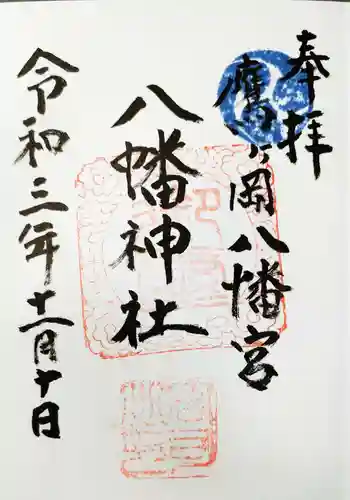 奉拝
鷹ヶ岡八幡宮
八幡神社
令和三年十一月十日